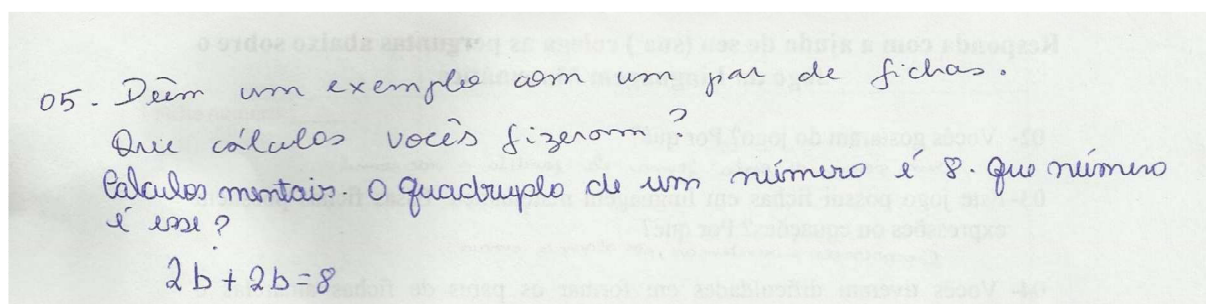 05. Dêem um exemplo com um par de fichas.
Que cálculos vocês fizeram?
Cálculos mentais. O quadruplo de um número é 8. Que número
é esse?
2b + 2b = 8